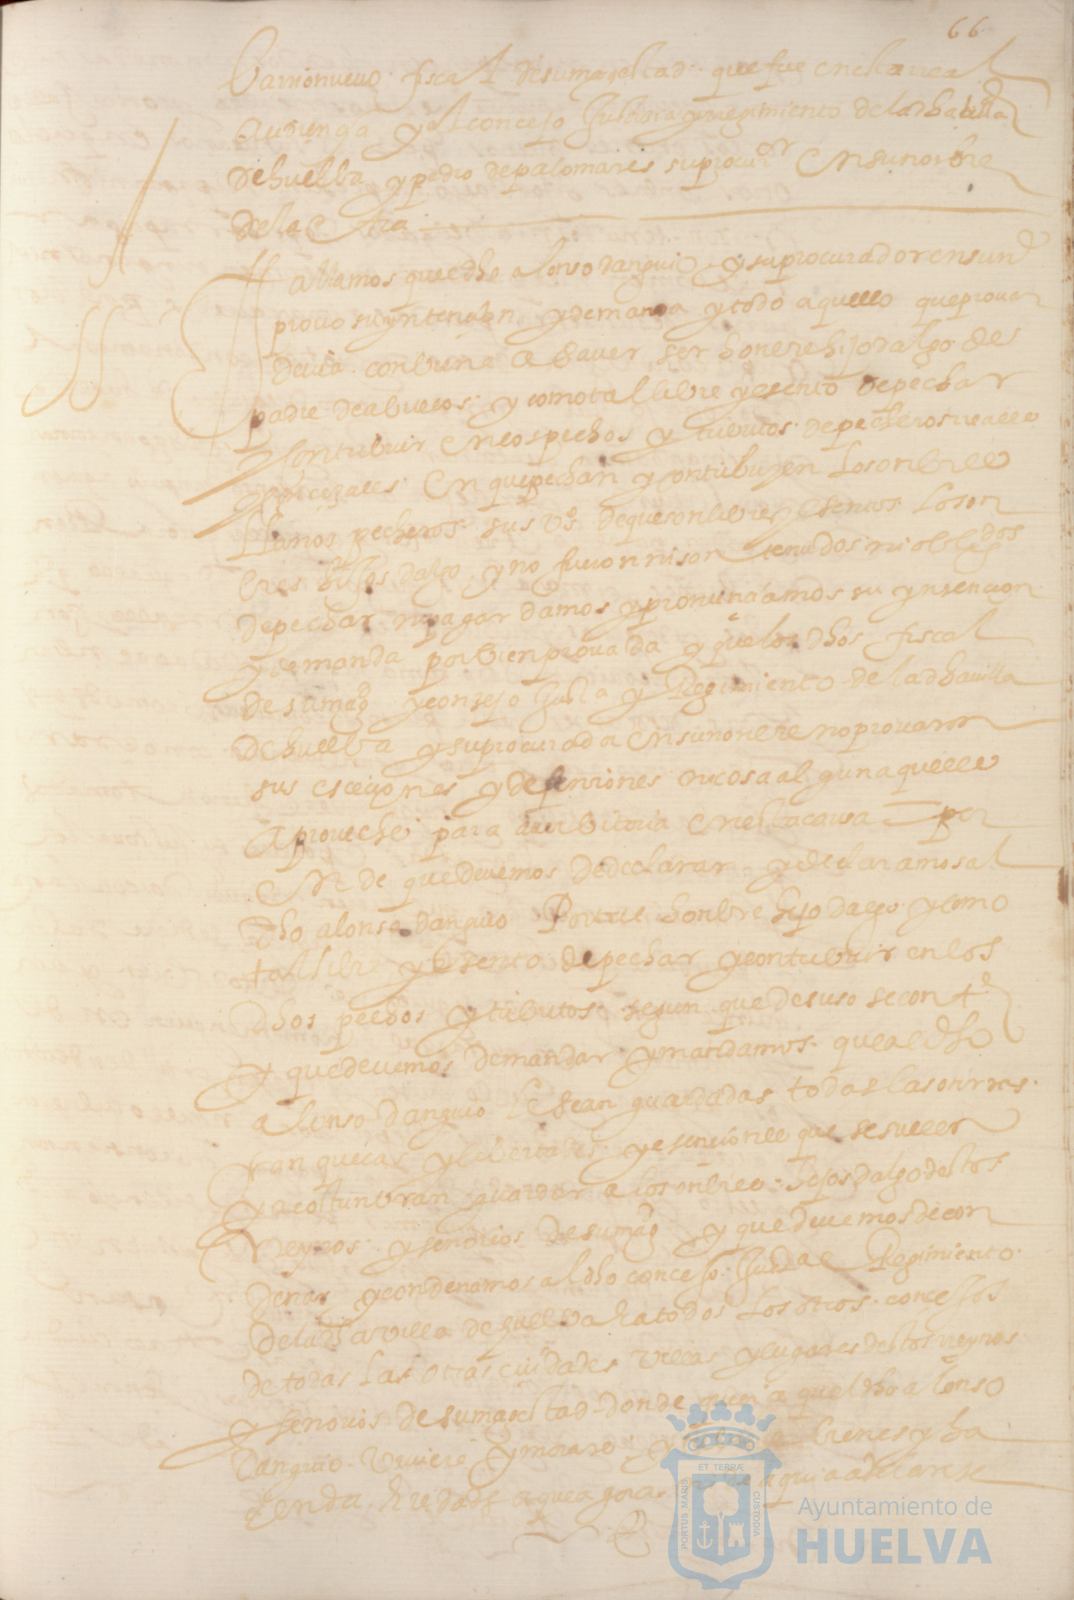 66
Barrionuevo fiscal de su magestad que fue en la rreal
audiençia y el concejo justiçia y rregimiento de la dha billa
de huelba y pedro de palomares su procur or en su nonbre
de la otra
ffallamos que el dho alonso danguio y su procurador en su n e
provo su yntençion y demanda y todo aquello que provar
devia conbiene a saver ser honbre hijodalgo de
padre de abuelos y como tal libre y esento de pechar
y contribuir en los pechos y tributos de pecheros rreales
y conçejales en que pechan y contribuyen los onbres
llanos pecheros sus v os de que son libres y esentos los on
bres hijos dalgo y no fueron ni son tenudos ni obligados
de pechar ni pagar damos y pronunçiamos su yntençion
y demanda por bien provada y que los dhos fiscal
de su mag d y consejo just a y Regimiento de la dha villa
de huelba y su procurador en su nonbre no provaron
sus eseçiones y defensiones ni cosa alguna que les
aproveche para aver bitoria en esta causa por
ende que devemos de declarar y declaramos al
dho alonso danguio por tal honbre hijo dalgo y como
tal libre y esento de pechar y contribuir en los
dhos pechos y tributos segun que de suso se cont e
y que devemos de mandar y mandamos que al dho
alonso danguio le sean guardadas todas las onrras
franqueças y libertades y esençiones que se suelen
y acostunbran guardar a los onbres hijos dalgo destos
rreynos y señorios de su mag d y que devemos de con
denar y condenamos al dho concejo just a e Regimiento
de la dha villa de huelba e a todos los otros concejos
de todas las otras çiudades villas y lugares destos rreynos
y señorios de su magestad donde quiera que el dho alonso
danguio viviere y morare y bienes y ha
zienda heredad e que agora de aqui adelante
PORTUS MARIS ET TERRÆ CUSTODIA
Ayuntamiento de
HUELVA